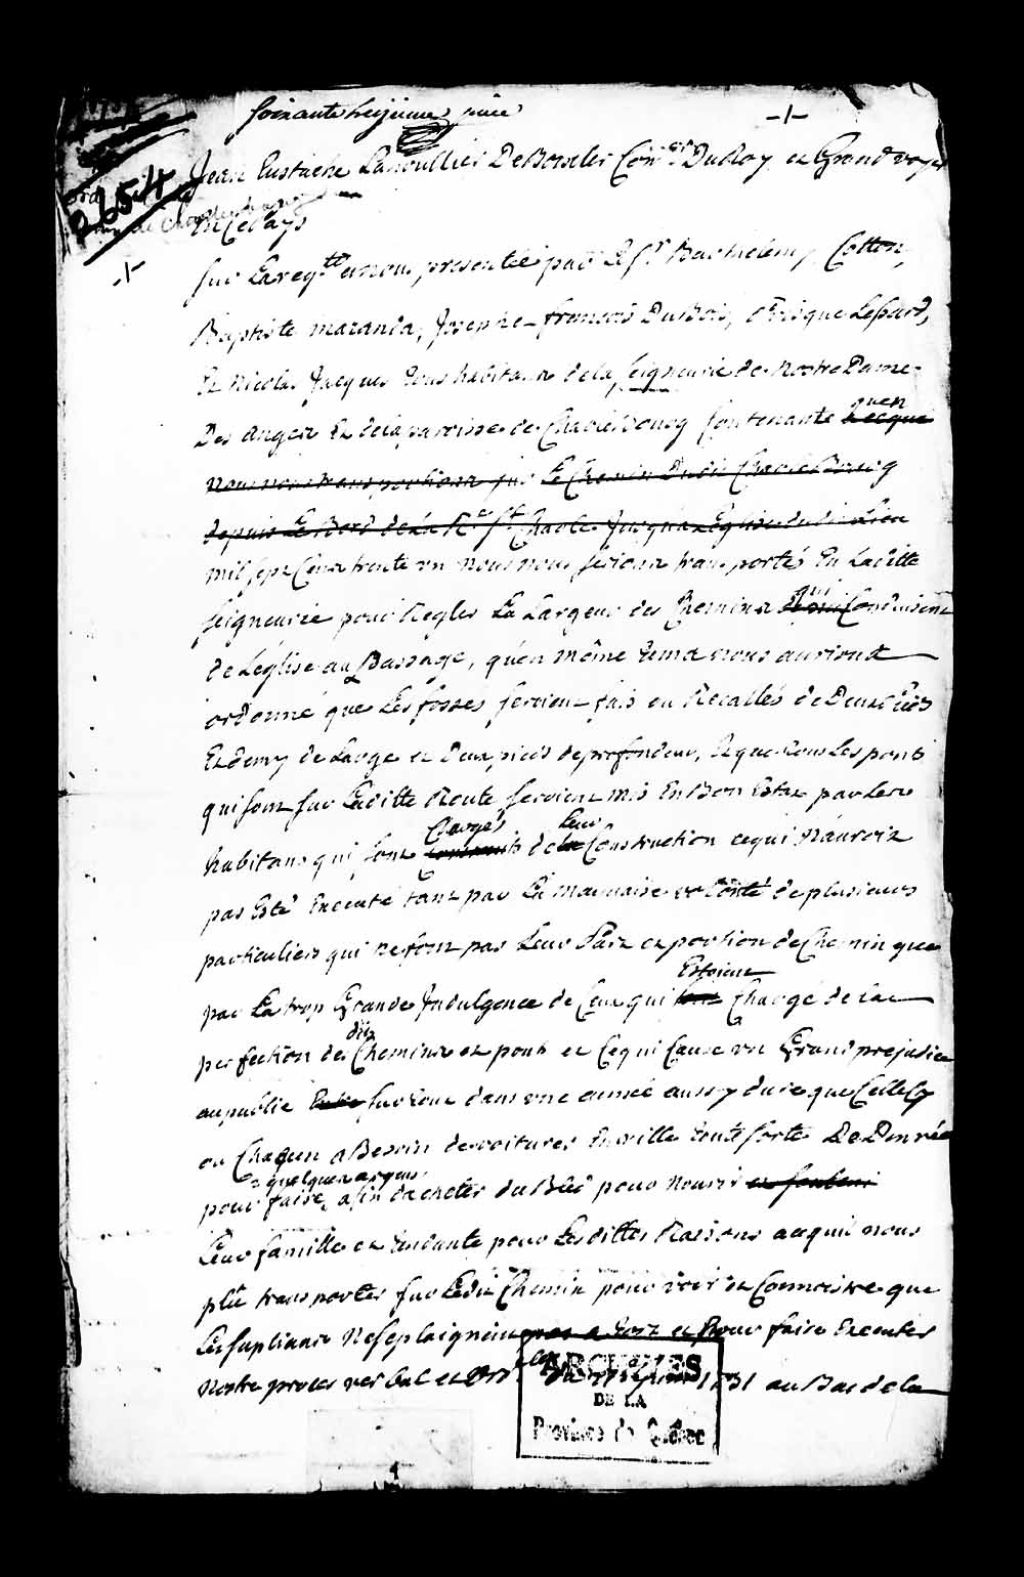 soixante seizieme
Jean Eustache Lanoullier DeBoiscler Con.er Du Roy et Grand voyer
2654
En Ce Pays
Sur La reqte a nous presentée par Le Sr Barthelemy Cotton,
Baptiste maranda, Joseph francois DuBois, Lessard,
Et Nicolas Jacques tous habitans de la seigneurie de Nostre Dame
Des anges Et de la paroisse de Charlebourg contenante quen
nous nous transportions sur Le Chemin Dudit Charlebourg
depuis Le Bord de La Re St Charles Jusqua Eglise dudit Lieu
mil sept Cens trente un nous nous serions transportés En Laditte
seigneurie pour Regler La Largeur des Chemins qui Conduisent
de Léglise au Passage, quen même tems nous aurions
ordonné que Les fossés seroient fais ou Recallés de Deux Pieds
Et demy de Large et deux pieds de profondeur, Et que tous Les ponts
qui sont sur Laditte Route seroient mis En Bon Estat par Les
habitans qui sont Chargés de leur Construction ce qui N'auroit
pas Esté Executé tant par La mauvaise volonté de plusieurs
particuliers qui ne font pas Leur Part et portion de Chemin que
par La trop Grande Indulgence de Ceux qui Estoient Chargé de La
perfection des dits Chemins et ponts et Ce qui Cause un Grand prejudice
au public surtout dans une année aussy dure que Celle Cy
ou Chaqun a Besoin de voiturer En ville toute sorte De Denrée
pour faire quelque argent afin dacheter du Bled pour Nourir et soutenir
Leur famille et tendante pour Lesdittes Raisons a ce quil nous
plût transporter sur Ledit Chemin pour voir et Connoistre que
Les supliants Ne se plaignoient pas a tort et Pour faire Executer
Nostre proces verbal et 1731 au Bas de la
ARCHIVES
DE LA
Province de Québec